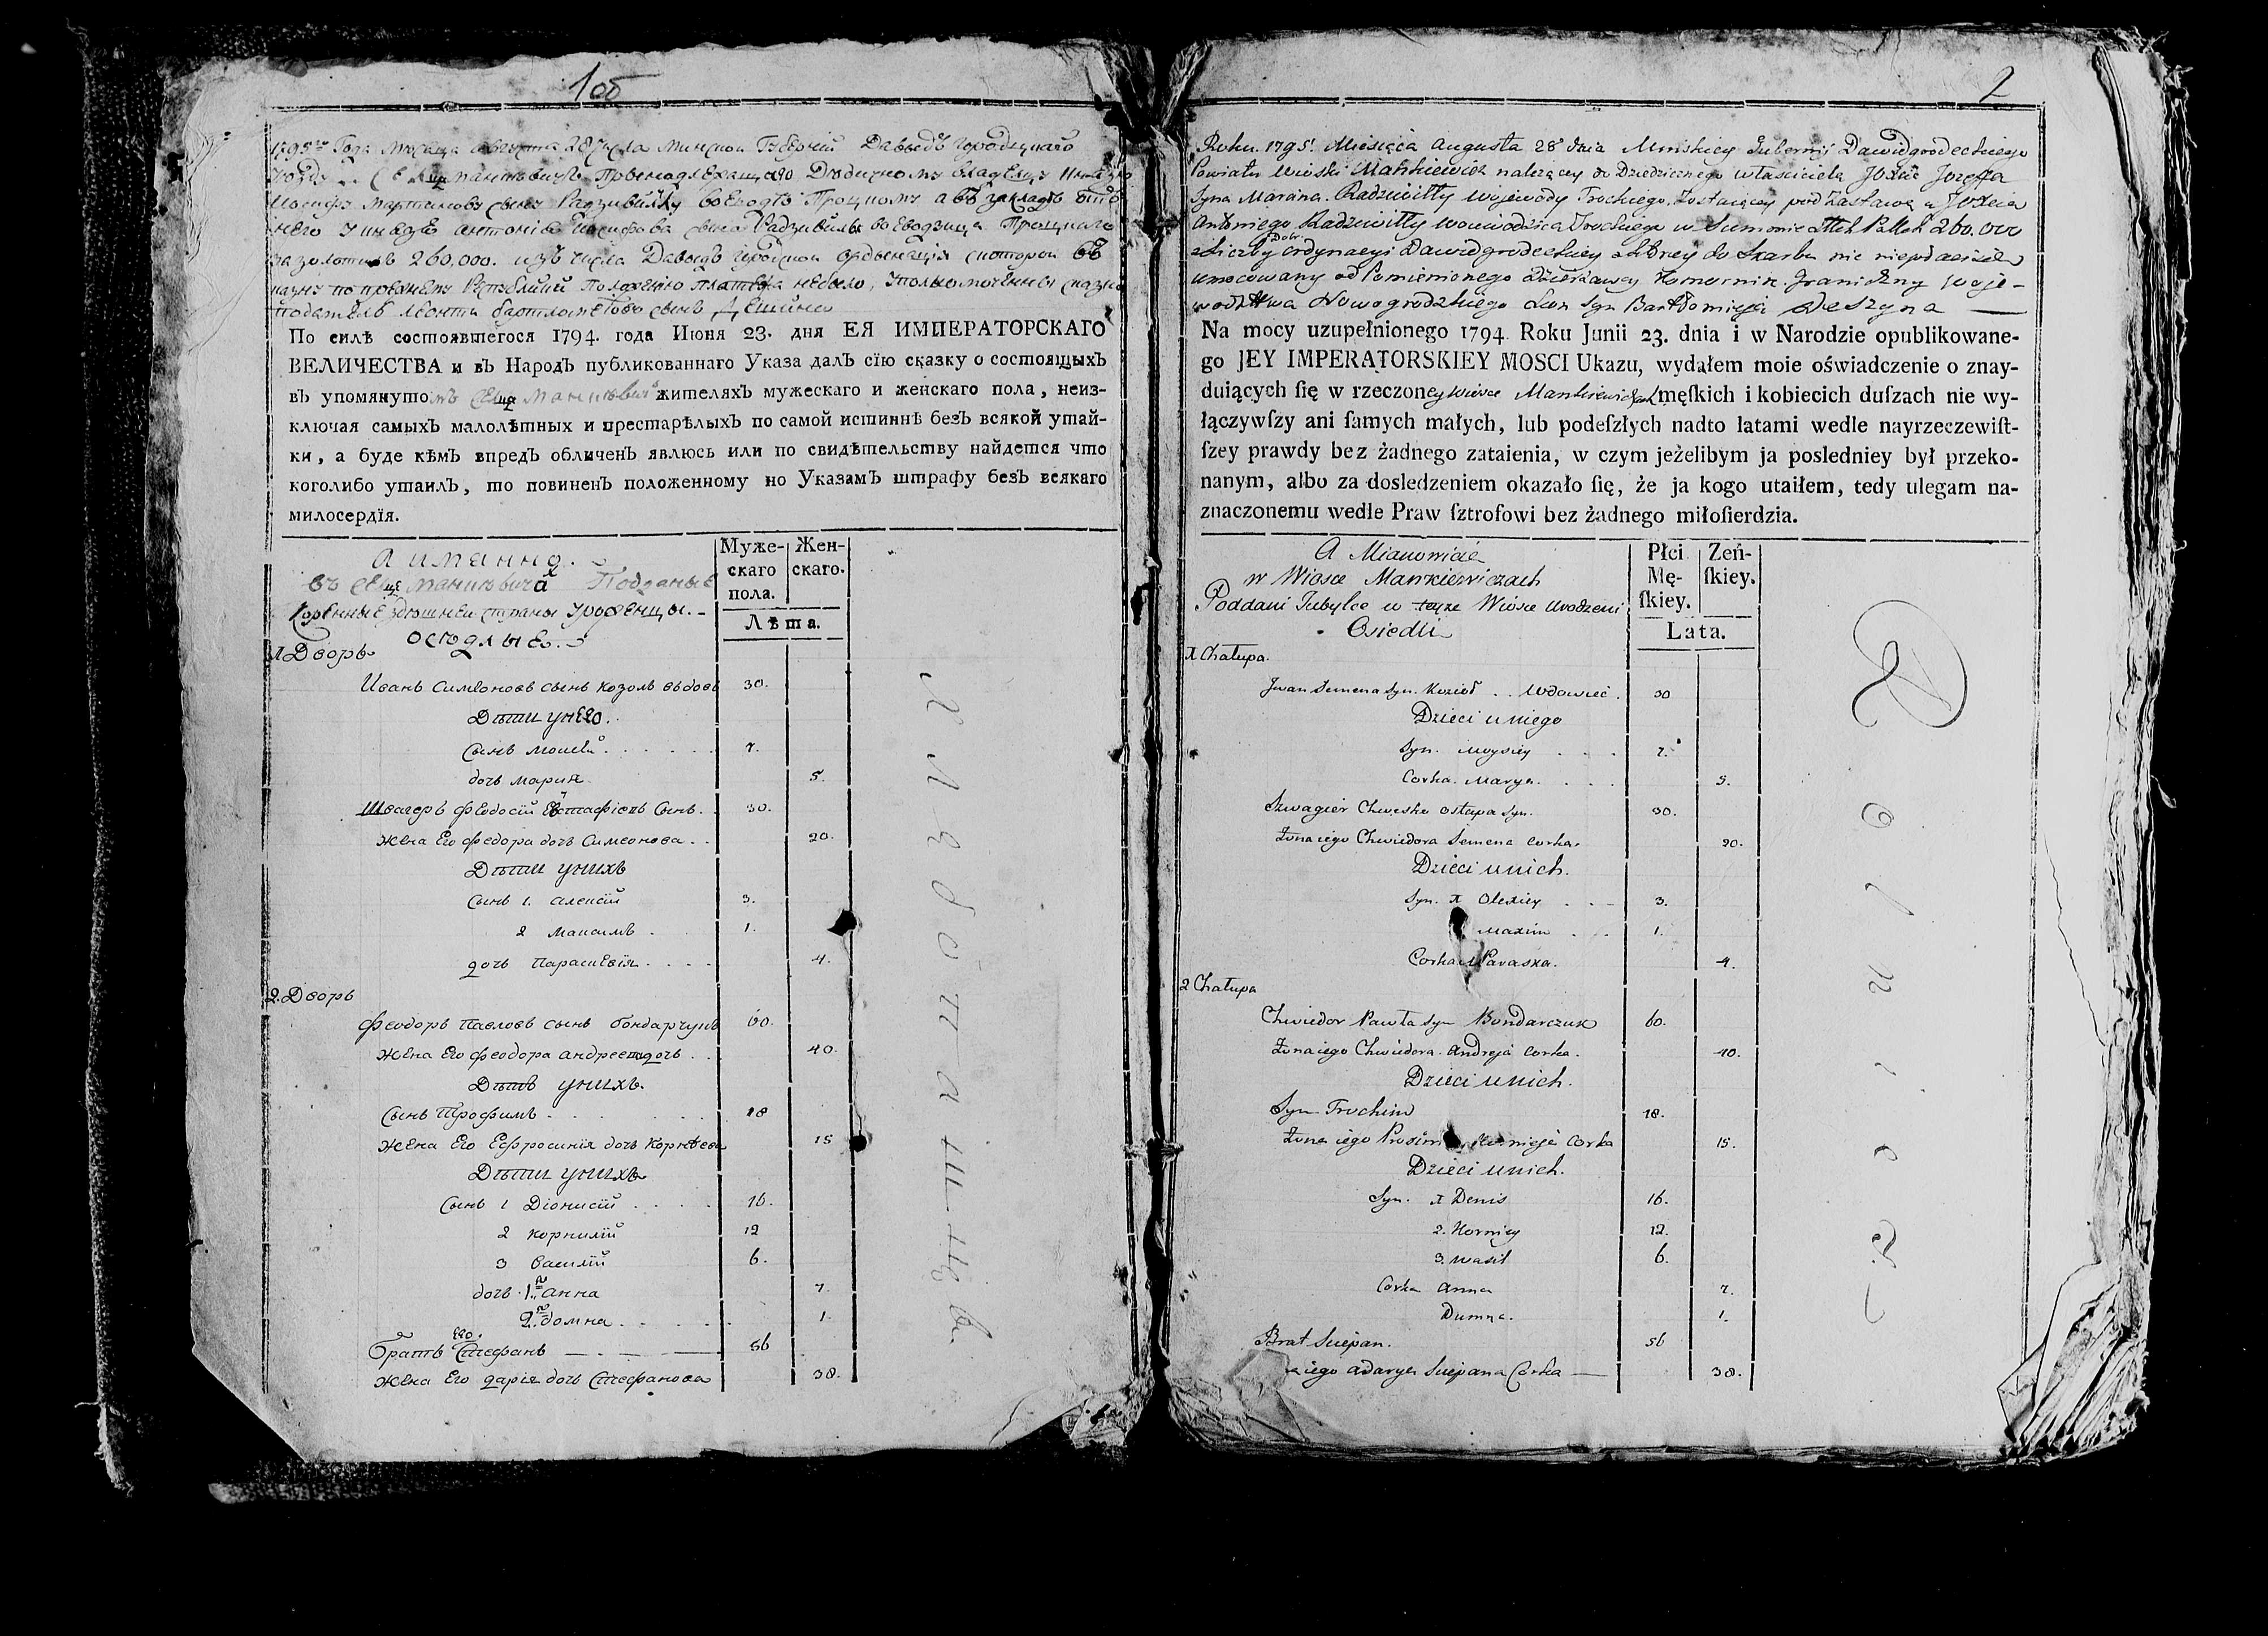 1об
1795го Года Месяца августа 28 числа минской Губерний Давыдъ городецкаго
Уезду Селца манкевичъ Принадлежащаго Дедичному владельцу Князю
Иосифу мартинову сыну Радзивиллу воеводе Троцкому а въ закладъ отъ
него у князя антонія Иосифова сына Радзивила воеводзица Троцкаго
за золотихъ 260,000. изъ числа Давыдъ городской ординацій с которой въ
казну по прежнему Републики Положению платежа небыло, уполномоченный сказки
податель Леонтій бартломеевъ сынъ Дешина
По силѣ состоявшегося 1794. года Июня 23. дня ЕЯ ИМПЕРАТОРСКАГО
ВЕЛИЧЕСТВА и въ НародЪ публикованнаго Указа далЪ сїю сказку о состоящыхЪ
въ упомянутомъ Селце манкевичахъ жителяхЪ мужескаго и женскаго пола, неиз-
ключая самыхЪ малолѣтныхЪ и престарѣлыхЪ по самой истиннѣ безЪ всякой утай-
ки, а буде кѣмЪ впредЪ обличенЪ явлюсь или по свидѣтельству найдется что
коголибо утаилЪ, то повиненЪ положенному по УказамЪ штрафу безЪ всякаго
милосердїя.
А имянно.
въ селце манкевичах Подданые
Коренные здешней стараны уроженцы.
оседлые.
Муже-
скаго
пола.
Жен-
скаго.
Лѣта.
1 Дворъ
Иванъ Симеоновъ сынъ Козолъ вдовъ 30.
Дѣти у него.
Сынъ мойсей 7.
дочь мария 5.
Швагеръ феодосій Евстафіевъ Сынъ. 30.
жена Его федора дочь Симеонова 20.
Дѣти у нихъ
Сынъ 1. алексій 3.
2 максимъ 1.
дочь Парасковія 4.
2. Дворъ
феодоръ Павловъ сынъ бондарчукъ 60.
жена Его феодора андреева дочь 40.
Дѣти у нихъ.
Сынъ Трофимъ 18
жена Его Ефросинія дочь Корнеева 15
Дѣти у нихъ
Сынъ 1 Діонисій 16.
2 корнилій 12
3 Василій 6.
дочь 1я анна 7.
2я домна 1.
братъ Его. Стефанъ 56
жена Его дарія дочь Стефанова 38.
2
Roku. 1795! Miesiąca Augusta 28 dnia Minskiey Gubernij Dawidgrodeckiego
Powiatu Wioski Mankiewicz nalezącey do Dziedzicznego własciciela JOXcia Jozefa
Syna Marcina. Radziwiłły Wojewody Trockiego, Zostaiącey pod Zastawą u JOXcia
Antoniego Radziwiłły Wojewodzica Trockiego w Summie złtch Pollch 260.000
z Liczby Dobr ordynacyi Dawidgrodeckiey z ktorey do Skarbu nic niepłaciełi
umocowany od Pomienionego dzierżawcy Komornik Graniczny Woje-
wodztwa Nowogrodzkiego Leon Syn Bartłomieja Deszyna
Na mocy uzupełnionego 1794. Roku Junii 23. dnia i w Narodzie opublikowane-
go JEY IMPERATORSKIEY MOSCI Ukazu, wydałem moie oświadczenie o znay-
duiących ſię w rzeczoney Wiosce Mankiewiczach męſkich i kobiecich duſzach nie wy-
łączywſzy ani ſamych małych, lub podeſzłych nadto latami wedle nayrzeczewiſt-
ſzey prawdy bez żadnego zataienia, w czym jeżelibym ja posledniey był przeko-
nanym, albo za dosledzeniem okazało ſię, że ja kogo utaiłem, tedy ulegam na-
znaczonemu wedle Praw ſztrofowi bez żadnego miłoſierdzia.
A Mianowicie
w Wiosce Mankiewiczach
Poddani Tubylce w teyze Wiosce Urodzeni
Osiedli
Płci
Mę-
ſkiey.
Żeń-
ſkiey.
Lata.
1 Chałupa.
Jwan Semena Syn. Kozioł .. Wdowiec. 30
Dzieci u niego
Syn. Moysiey 7.
Corka. Marya. 5.
Szwagier Chwesko Ostapa Syn. 30.
Żona iego Chwiedora Semena Corka. 20.
Dzieci u nich.
Syn. 1 Olexiey 3.
Maxim 1.
Corka Paraska. 4.
2 Chałupa
Chwiedor Pawła Syn Bondarczuk 60.
Żona iego Chwiedora. Andreja Corka. 40.
Dzieci u nich.
Syn Trochim 18.
Żona iego Corka 15.
Dzieci u nich.
Syn. 1 Denis 16.
2. Korniey 12.
3. Wasil 6.
Corka Anna 7.
Dumna. 1.
Brat Sciepan. 56
iego Adarya Sciepana Corka 38.